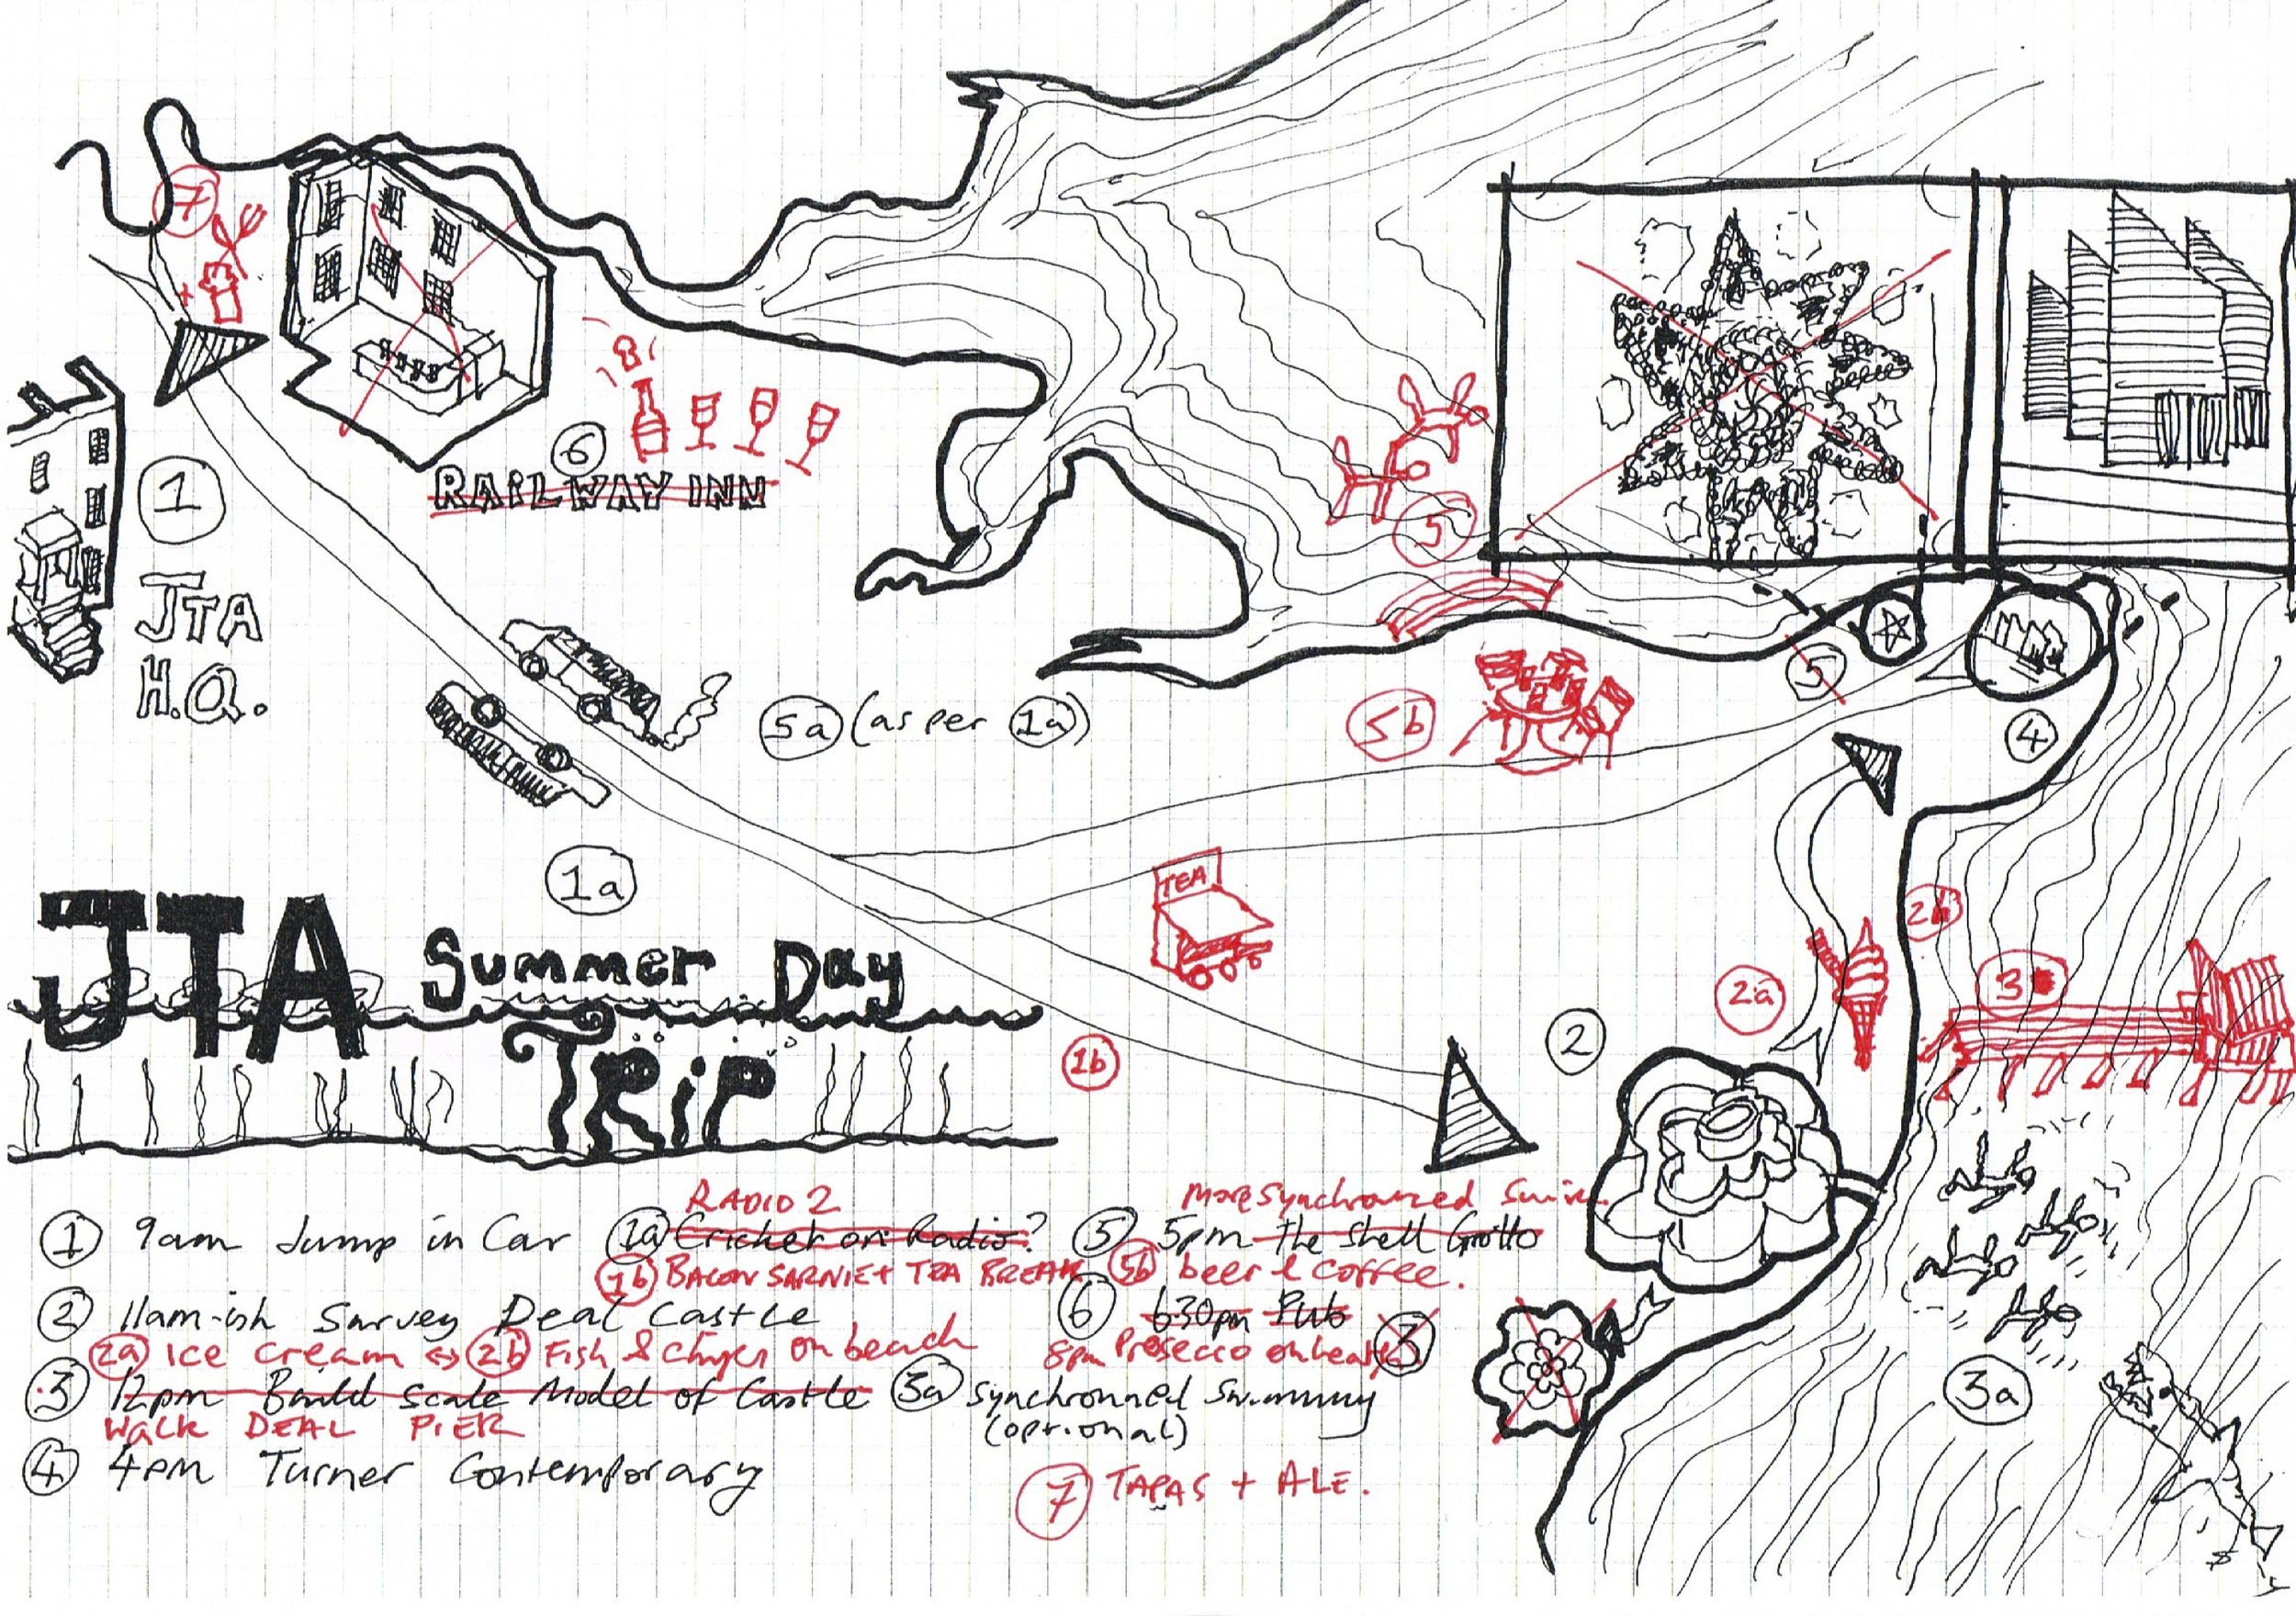 7
1
JTA
H.Q.
6
RAILWAY INN
5
5a (as per 1a)
5b
5
4
1a
TEA
2b
2a
3
2
1b
3a
JTA Summer Day
TRiP
RADIO 2
1 9am Jump in Car 1a Cricket on Radio?
1b BACON SARNIE + TEA BREAK
2 11am-ish Survey Deal Castle
2a ICE CREAM <-> 2b Fish & Chips on beach
3 12pm Build Scale Model of Castle 3a Synchronned Swimmy
(optional)
WALK DEAL PIER
4 4pm Turner Contemporary
More Synchronized Swim
5 5pm The Shell Grotto
5b beer & coffee.
6 630pm Pub
8pm Prosecco on heath
3
7 TAPAS + ALE.